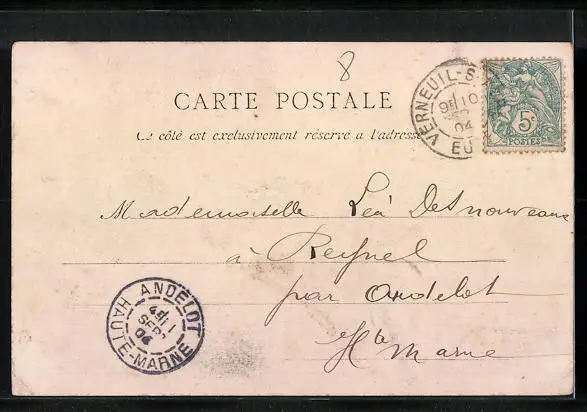 8
CARTE POSTALE
Ce côté est exclusivement réservé a l'adresse
VERNEUIL-S-
9E 10
SEP
04
EU
5c
POSTES
Mademoiselle Léa Desnouveaux
à Reynel
par Andelot
Hte Marne
ANDELOT
4E 11
SEPT
04
HAUTE-MARNE